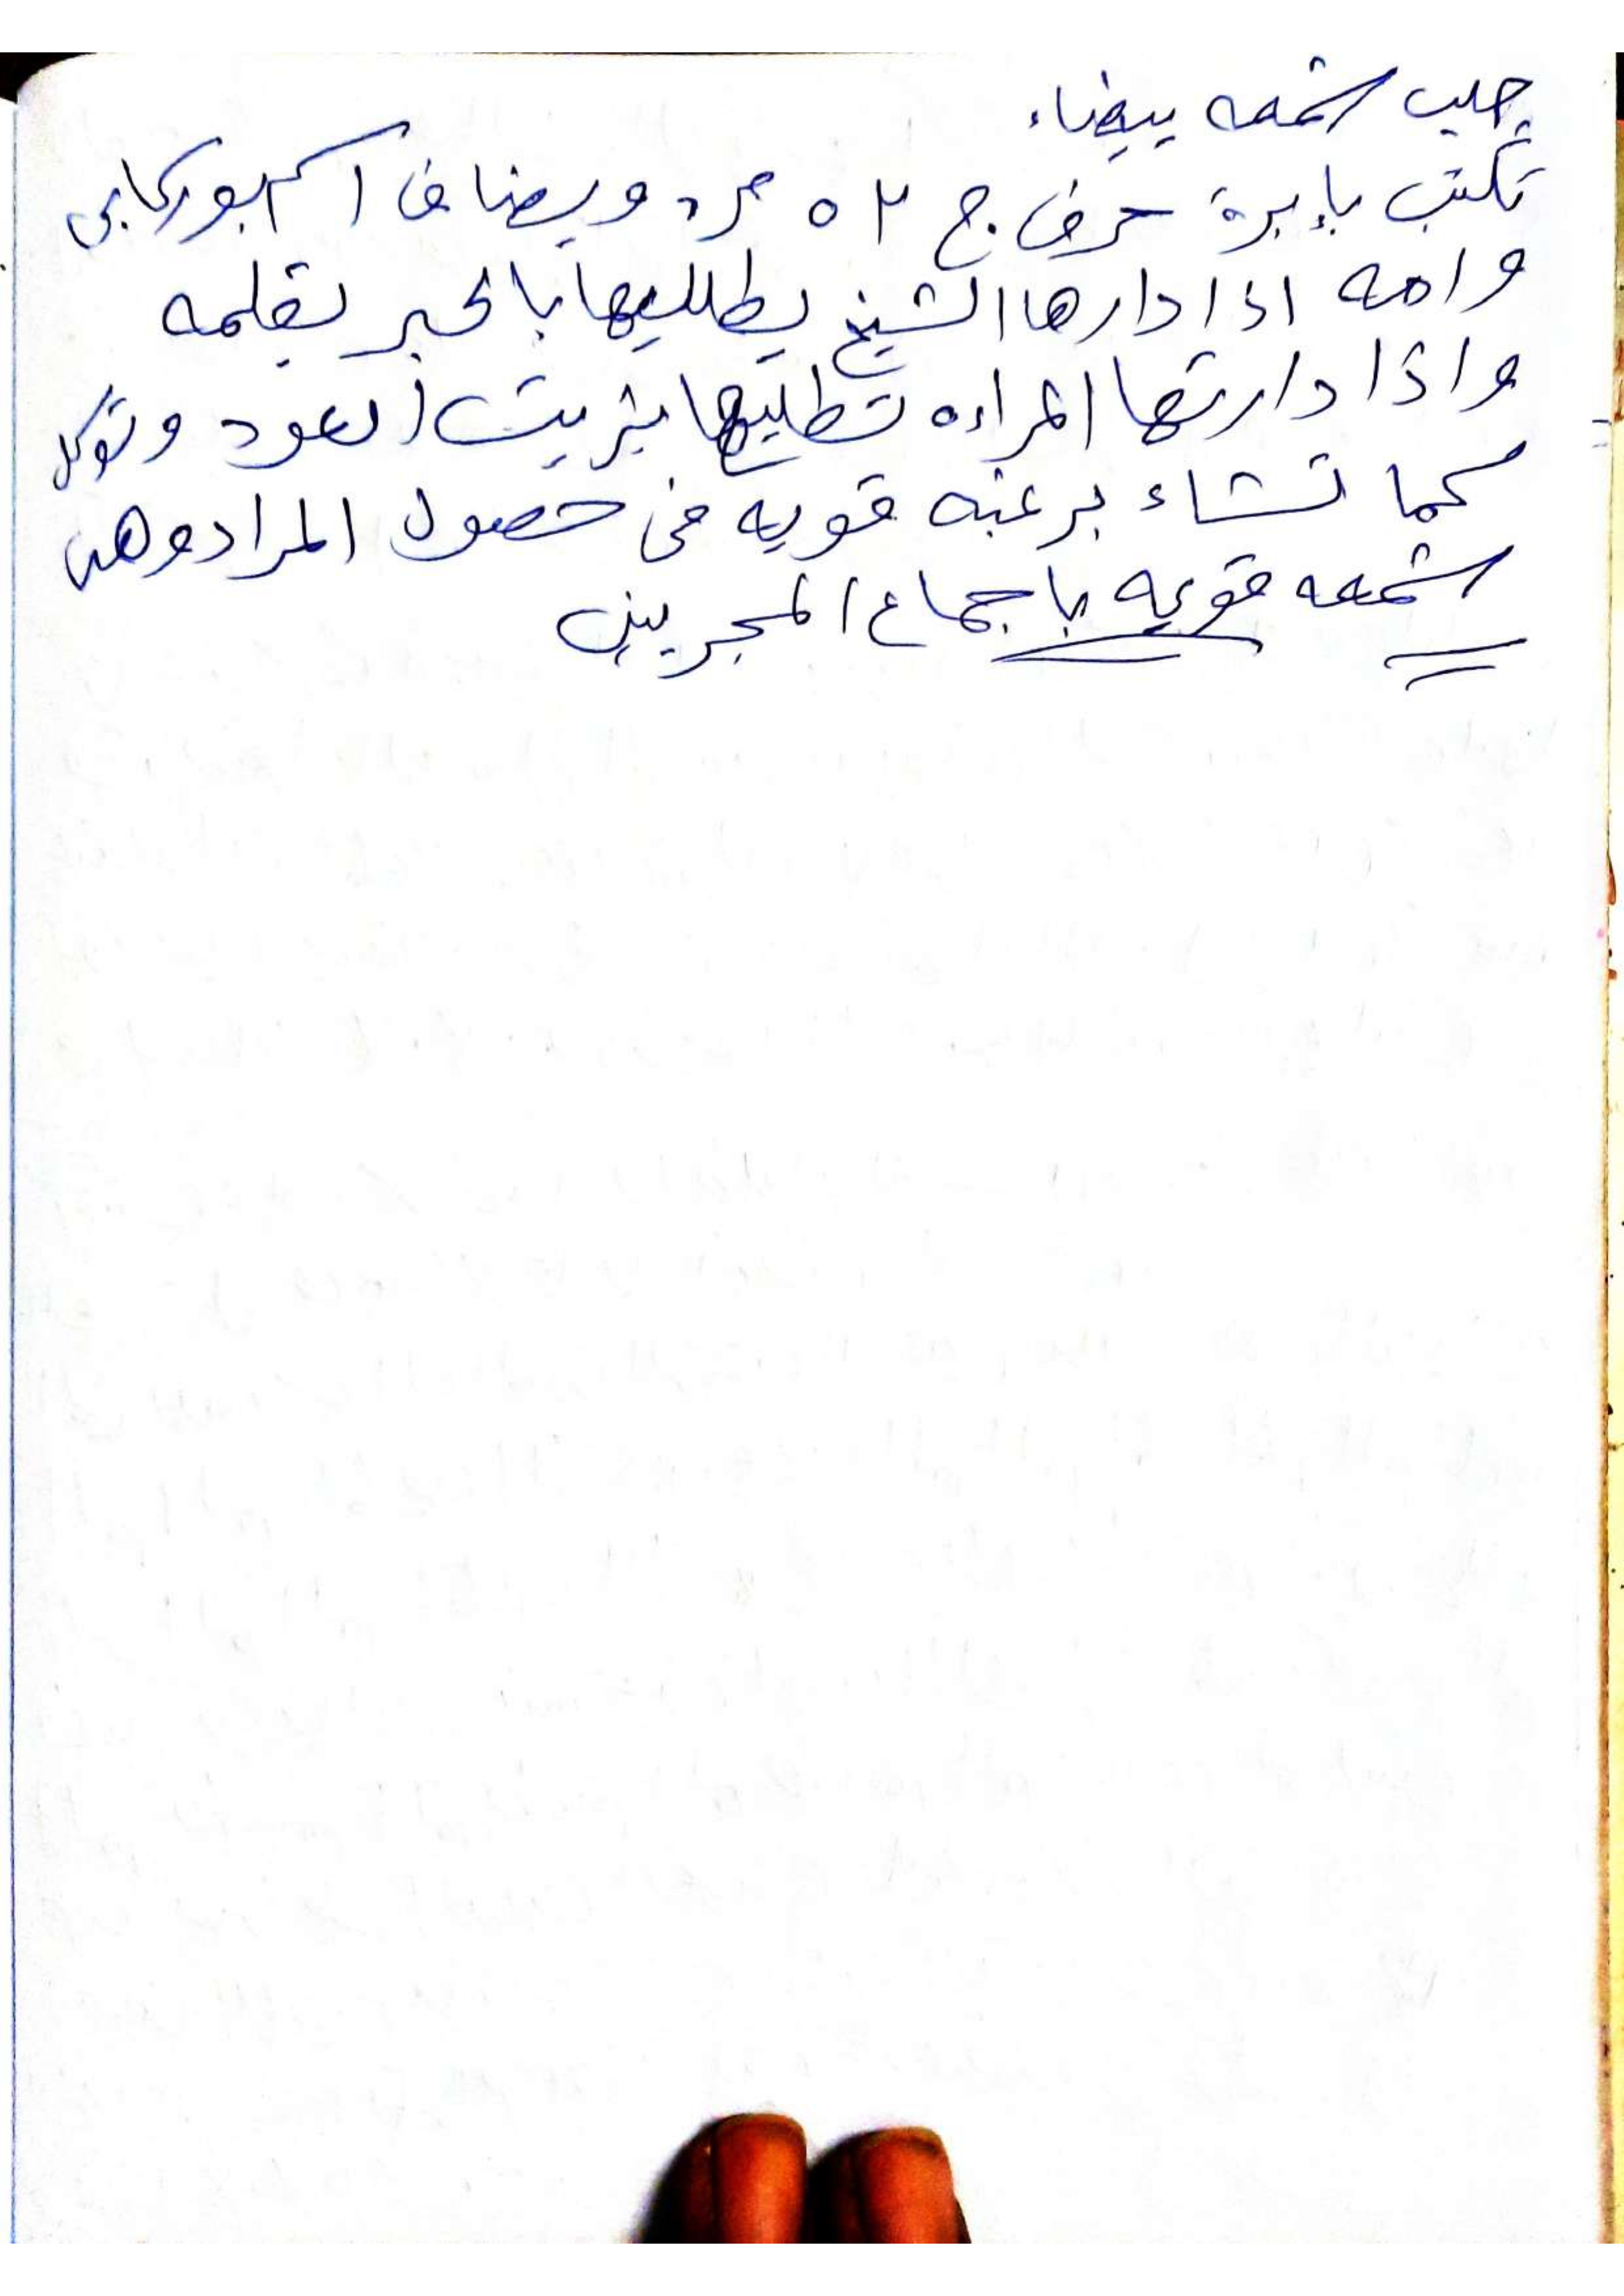 جلب شمعه بيضاء
تكتب بإبرة حرف ج ٥٣ مره ويضاف اسم بوركابي
وامه اذا دارها الشيخ يطليها بالحبر بقلمه
واذا دارتها المراءه تطليها بزيت العود وتوكل
كما تشاء برغبه قويه في حصول المراد وهي
شمعه قويه باجماع المجربين